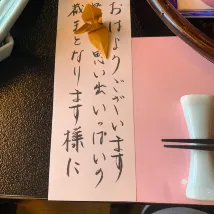 おはようございます
思い出いっぱいの
歳末となります様に